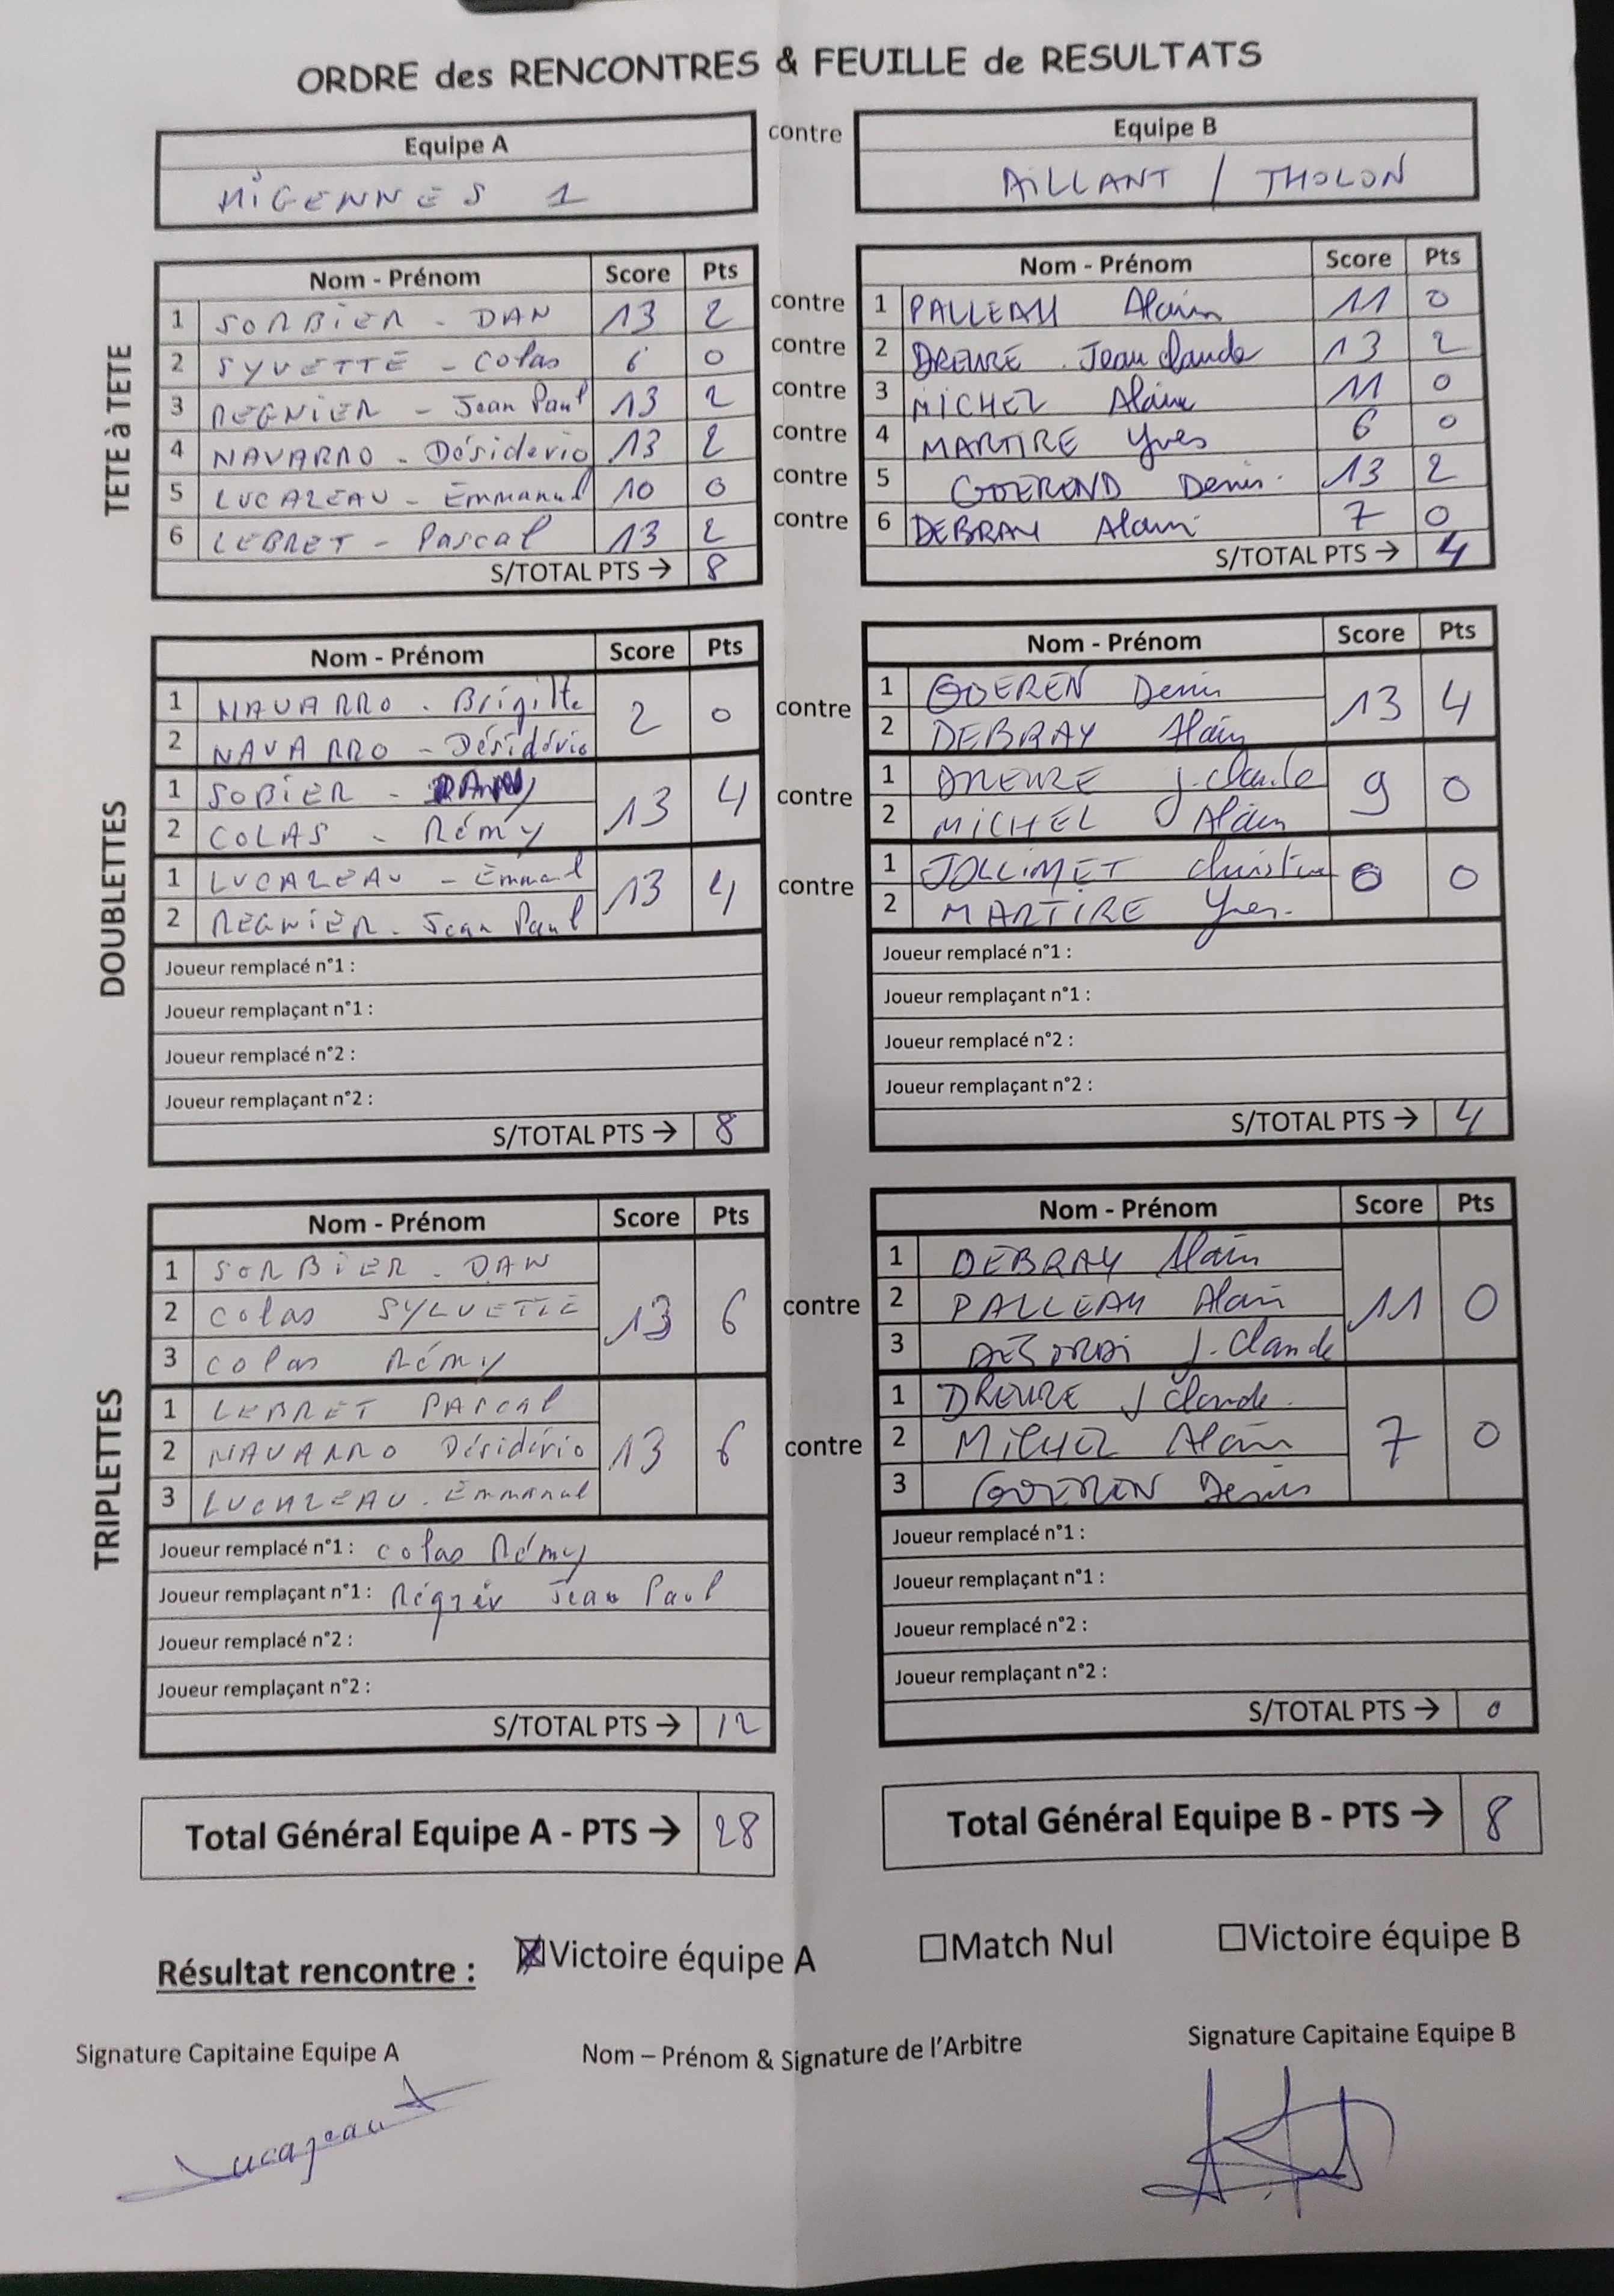 ORDRE des RENCONTRES & FEUILLE de RESULTATS
Equipe A contre Equipe B
MIGENNES 1 AILLANT / THOLON
TETE à TETE
Nom - Prénom Score Pts Nom - Prénom Score Pts
1 SORBIER - DAN 13 2 contre 1 PALLEAU Alain 11 0
2 SYVETTE - Colas 6 0 contre 2 DREURE Jean claude 13 2
3 REGNIER - Jean Paul 13 2 contre 3 MICHEL Alain 11 0
4 NAVARRO - Désiderio 13 2 contre 4 MARTIRE Yves 6 0
5 LUCAZEAU - Emmanuel 10 0 contre 5 GOEROND Denis 13 2
6 LEBRET - Pascal 13 2 contre 6 DEBRAY Alain 7 0
S/TOTAL PTS → 8 S/TOTAL PTS → 4
DOUBLETTES
Nom - Prénom Score Pts Nom - Prénom Score Pts
1 NAVARRO - Brigitte 2 0 contre 1 GOEREN Denis 13 4
2 NAVARRO - Désidério 2 DEBRAY Alain
1 SOBIER - DANY 13 4 contre 1 DREURE J. Claude 9 0
2 COLAS - Rémy 2 MICHEL Alain
1 LUCAZEAU - Emmanuel 13 4 contre 1 JOLLIMET 0 0
2 REGNIER - Jean Paul 2 MARTIRE Yves.
Joueur remplacé n°1 : Joueur remplacé n°1 :
Joueur remplaçant n°1 : Joueur remplaçant n°1 :
Joueur remplacé n°2 : Joueur remplacé n°2 :
Joueur remplaçant n°2 : Joueur remplaçant n°2 :
S/TOTAL PTS → 8 S/TOTAL PTS → 4
TRIPLETTES
Nom - Prénom Score Pts Nom - Prénom Score Pts
1 SORBIER - DAN 13 6 contre 1 DEBRAY Alain 11 0
2 Colas SYLVETTE 2 PALLEAU Alain
3 Colas Rémy 3 J. Claude
1 LEBRET PASCAL 13 6 contre 1 DREURE J Claude 7 0
2 NAVARRO Désidério 2 MICHEL Alain
3 LUCAZEAU - Emmanuel 3 GOEREN Denis
Joueur remplacé n°1 : Colas Rémy Joueur remplacé n°1 :
Joueur remplaçant n°1 : Régnier Jean Paul Joueur remplaçant n°1 :
Joueur remplacé n°2 : Joueur remplacé n°2 :
Joueur remplaçant n°2 : Joueur remplaçant n°2 :
S/TOTAL PTS → 12 S/TOTAL PTS → 0
Total Général Equipe A - PTS → 28 Total Général Equipe B - PTS → 8
Résultat rencontre : ☒Victoire équipe A ☐Match Nul ☐Victoire équipe B
Signature Capitaine Equipe A Nom – Prénom & Signature de l'Arbitre Signature Capitaine Equipe B
Lucazeau